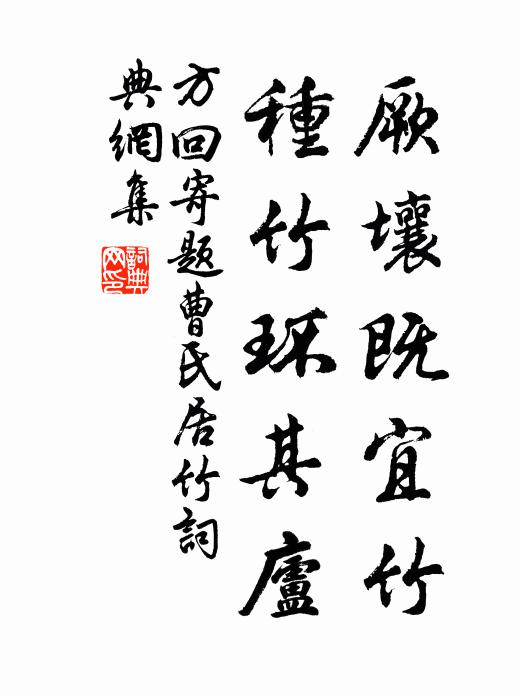 厥壤既宜竹
種竹环其廬
方回寄題曹氏居竹詞
典網集
詞典网印